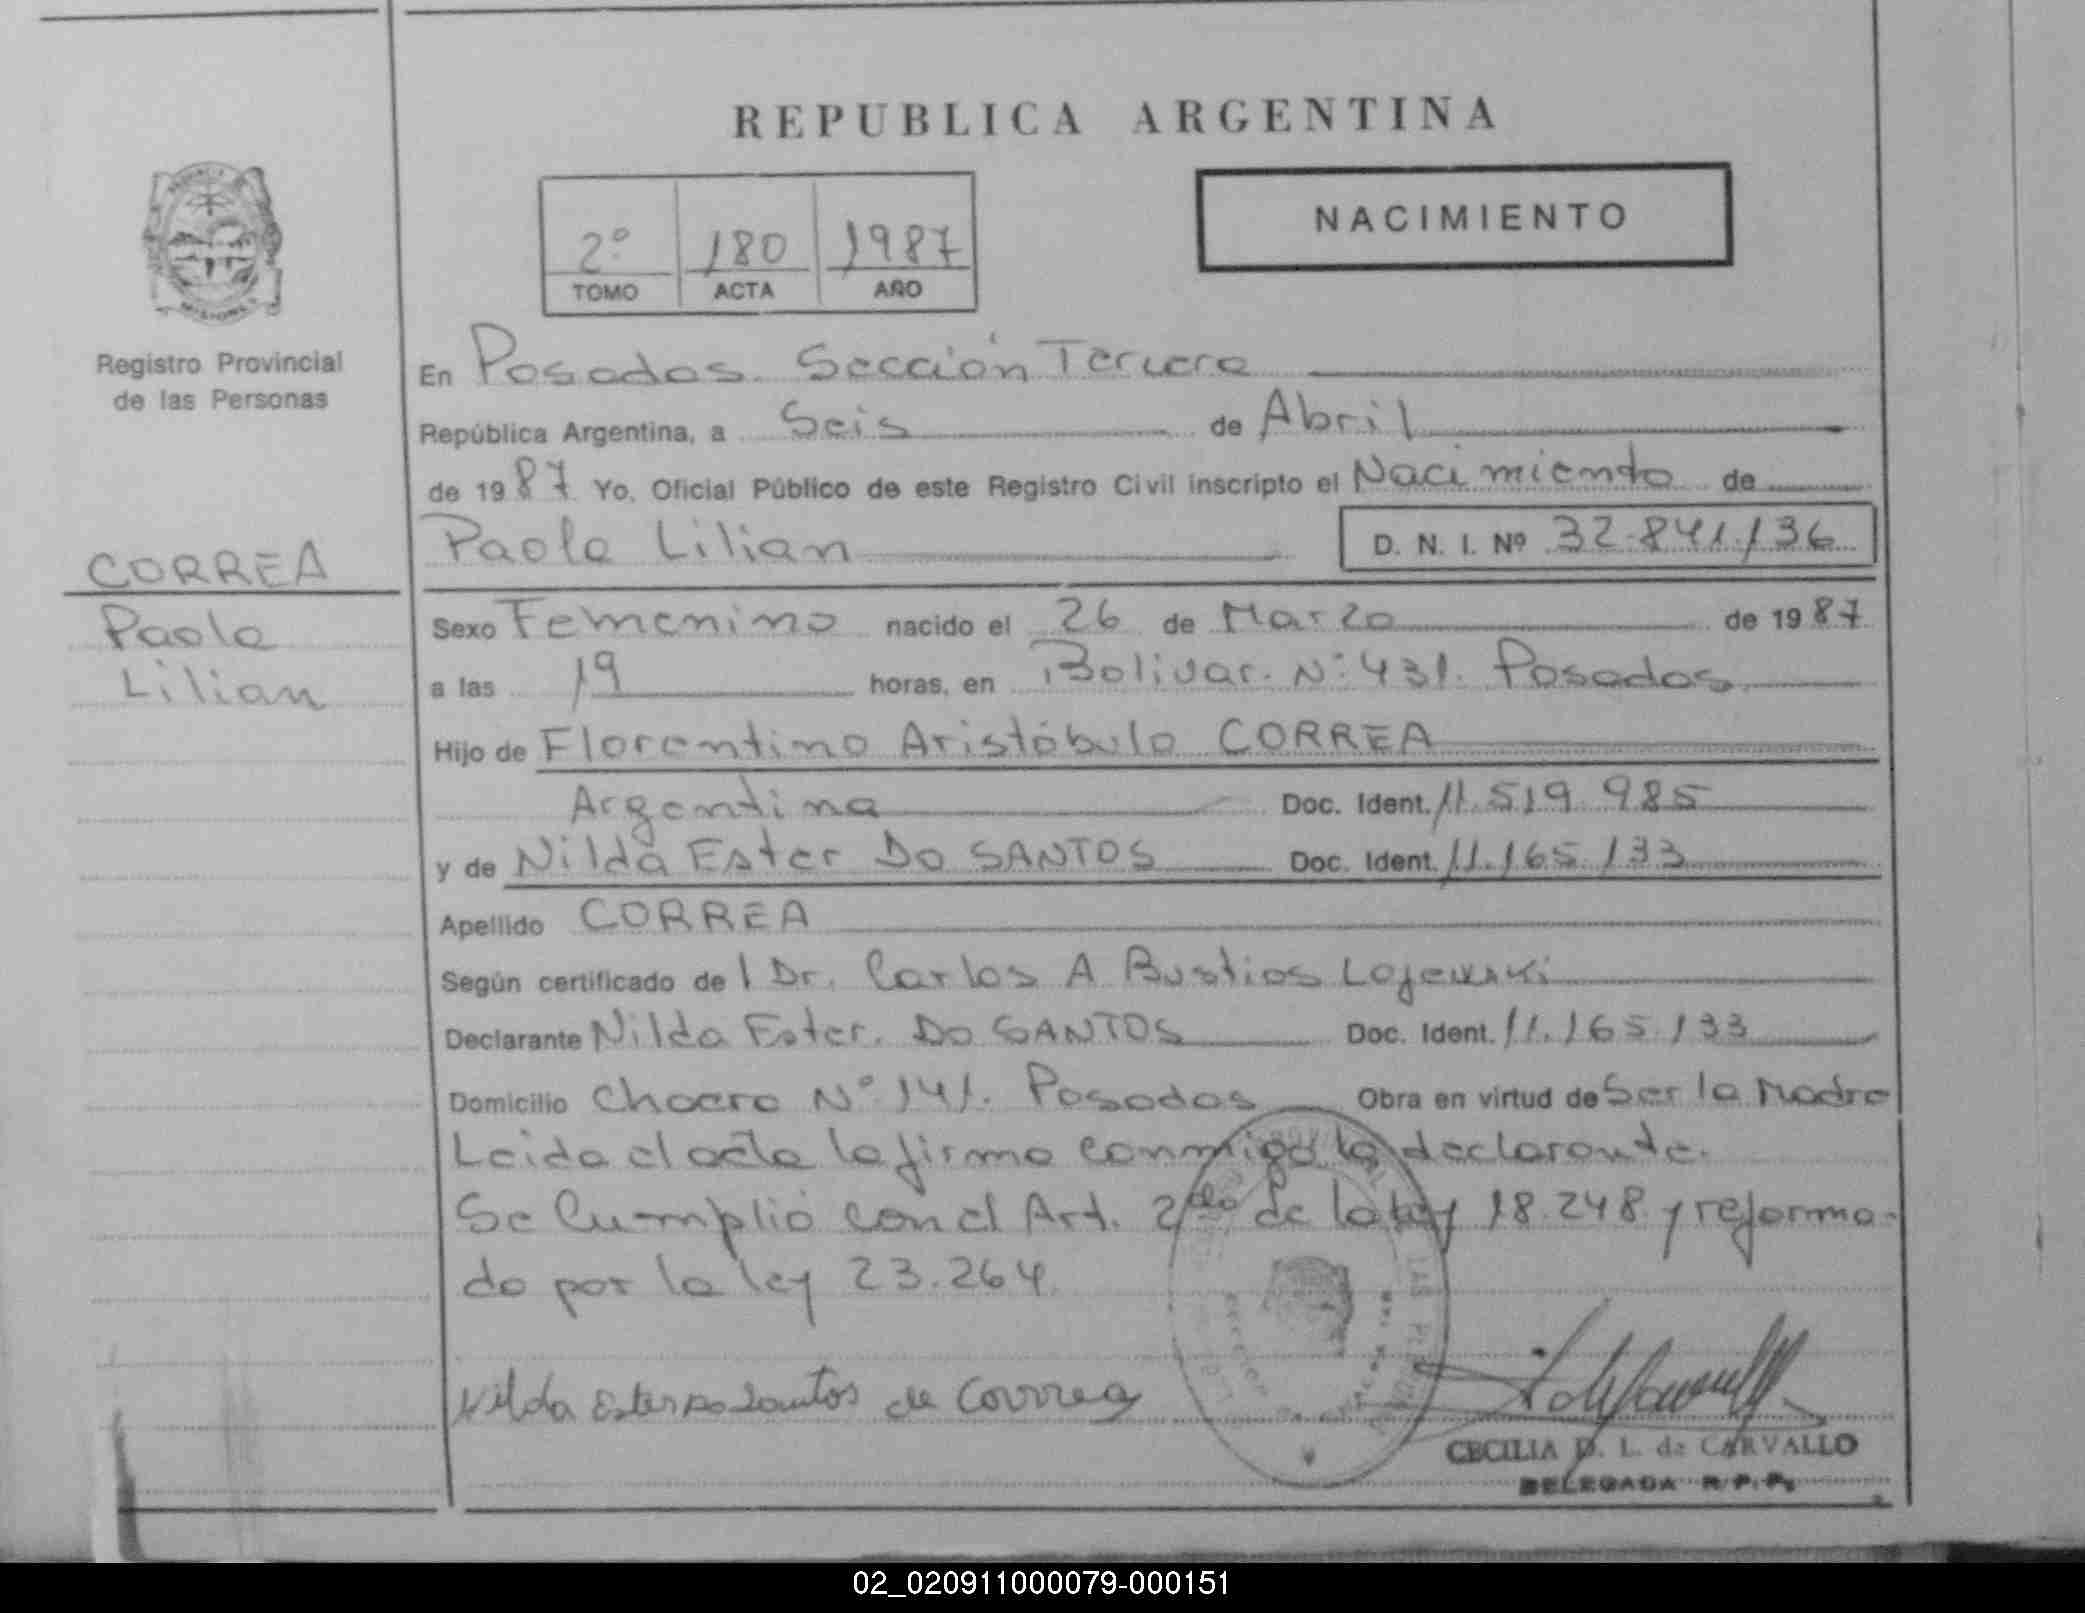 REPUBLICA ARGENTINA
NACIMIENTO
2º 180 1987
TOMO ACTA AÑO
MISIONES
Registro Provincial
de las Personas
CORREA
Paola
Lilian
En Posadas. Sección Tercera
República Argentina, a Seis de Abril
de 1987 Yo, Oficial Público de este Registro Civil inscripto el Nacimiento de
Paola Lilian D. N. I. Nº 32.841.136
Sexo Femenino nacido el 26 de Marzo de 1987
a las 19 horas, en Bolivar. Nº 431. Posadas
Hijo de Florentino Aristóbulo CORREA
Argentina Doc. Ident. 11.519.985
y de Nilda Ester Do SANTOS Doc. Ident. 11.165.133
Apellido CORREA
Según certificado de l Dr. Carlos A Bustios
Declarante Nilda Ester. Do SANTOS Doc. Ident. 11.165.133
Domicilio Nº 141. Posadas Obra en virtud de Ser la Madre
Leida el acta la firma conmigo la declarante.
Se Cumplió con el Art. 2do de la ley 18.248 y reforma-
do por la ley 23.264
Nilda Ester Do Santos de Correa
CECILIA D. L. de CARVALLO
DELEGADA R.P.P.
02_020911000079-000151